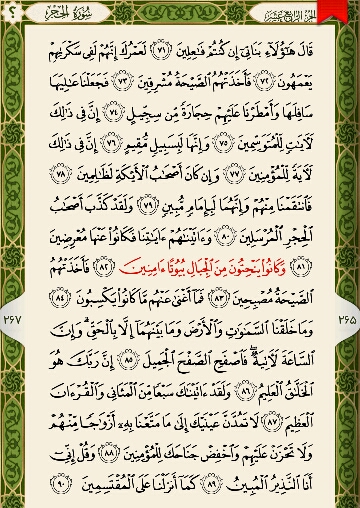 ؟
سُورَةُ الحِجْرِ
الجزء الرابع عشر
قَالَ هَٰٓؤُلَآءِ بَنَاتِىٓ إِن كُنتُمْ فَٰعِلِينَ ﴿٧١﴾ لَعَمْرُكَ إِنَّهُمْ لَفِى سَكْرَتِهِمْ
يَعْمَهُونَ ﴿٧٢﴾ فَأَخَذَتْهُمُ ٱلصَّيْحَةُ مُشْرِقِينَ ﴿٧٣﴾ فَجَعَلْنَا عَٰلِيَهَا
سَافِلَهَا وَأَمْطَرْنَا عَلَيْهِمْ حِجَارَةً مِّن سِجِّيلٍ ﴿٧٤﴾ إِنَّ فِى ذَٰلِكَ
لَءَايَٰتٍ لِّلْمُتَوَسِّمِينَ ﴿٧٥﴾ وَإِنَّهَا لَبِسَبِيلٍ مُّقِيمٍ ﴿٧٦﴾ إِنَّ فِى ذَٰلِكَ
لَءَايَةً لِّلْمُؤْمِنِينَ ﴿٧٧﴾ وَإِن كَانَ أَصْحَٰبُ ٱلْأَيْكَةِ لَظَٰلِمِينَ ﴿٧٨﴾
فَٱنتَقَمْنَا مِنْهُمْ وَإِنَّهُمَا لَبِإِمَامٍ مُّبِينٍ ﴿٧٩﴾ وَلَقَدْ كَذَّبَ أَصْحَٰبُ
ٱلْحِجْرِ ٱلْمُرْسَلِينَ ﴿٨٠﴾ وَءَاتَيْنَٰهُمْ ءَايَٰتِنَا فَكَانُوا۟ عَنْهَا مُعْرِضِينَ
﴿٨١﴾ وَكَانُوا۟ يَنْحِتُونَ مِنَ ٱلْجِبَالِ بُيُوتًا ءَامِنِينَ ﴿٨٢﴾ فَأَخَذَتْهُمُ
ٱلصَّيْحَةُ مُصْبِحِينَ ﴿٨٣﴾ فَمَآ أَغْنَىٰ عَنْهُم مَّا كَانُوا۟ يَكْسِبُونَ ﴿٨٤﴾
وَمَا خَلَقْنَا ٱلسَّمَٰوَٰتِ وَٱلْأَرْضَ وَمَا بَيْنَهُمَآ إِلَّا بِٱلْحَقِّ ۗ وَإِنَّ
ٱلسَّاعَةَ لَءَاتِيَةٌ ۖ فَٱصْفَحِ ٱلصَّفْحَ ٱلْجَمِيلَ ﴿٨٥﴾ إِنَّ رَبَّكَ هُوَ
ٱلْخَلَّٰقُ ٱلْعَلِيمُ ﴿٨٦﴾ وَلَقَدْ ءَاتَيْنَٰكَ سَبْعًا مِّنَ ٱلْمَثَانِى وَٱلْقُرْءَانَ
ٱلْعَظِيمَ ﴿٨٧﴾ لَا تَمُدَّنَّ عَيْنَيْكَ إِلَىٰ مَا مَتَّعْنَا بِهِۦٓ أَزْوَٰجًا مِّنْهُمْ
وَلَا تَحْزَنْ عَلَيْهِمْ وَٱخْفِضْ جَنَاحَكَ لِلْمُؤْمِنِينَ ﴿٨٨﴾ وَقُلْ إِنِّىٓ
أَنَا ٱلنَّذِيرُ ٱلْمُبِينُ ﴿٨٩﴾ كَمَآ أَنزَلْنَا عَلَى ٱلْمُقْتَسِمِينَ ﴿٩٠﴾
٢٦٥
٢٦٧